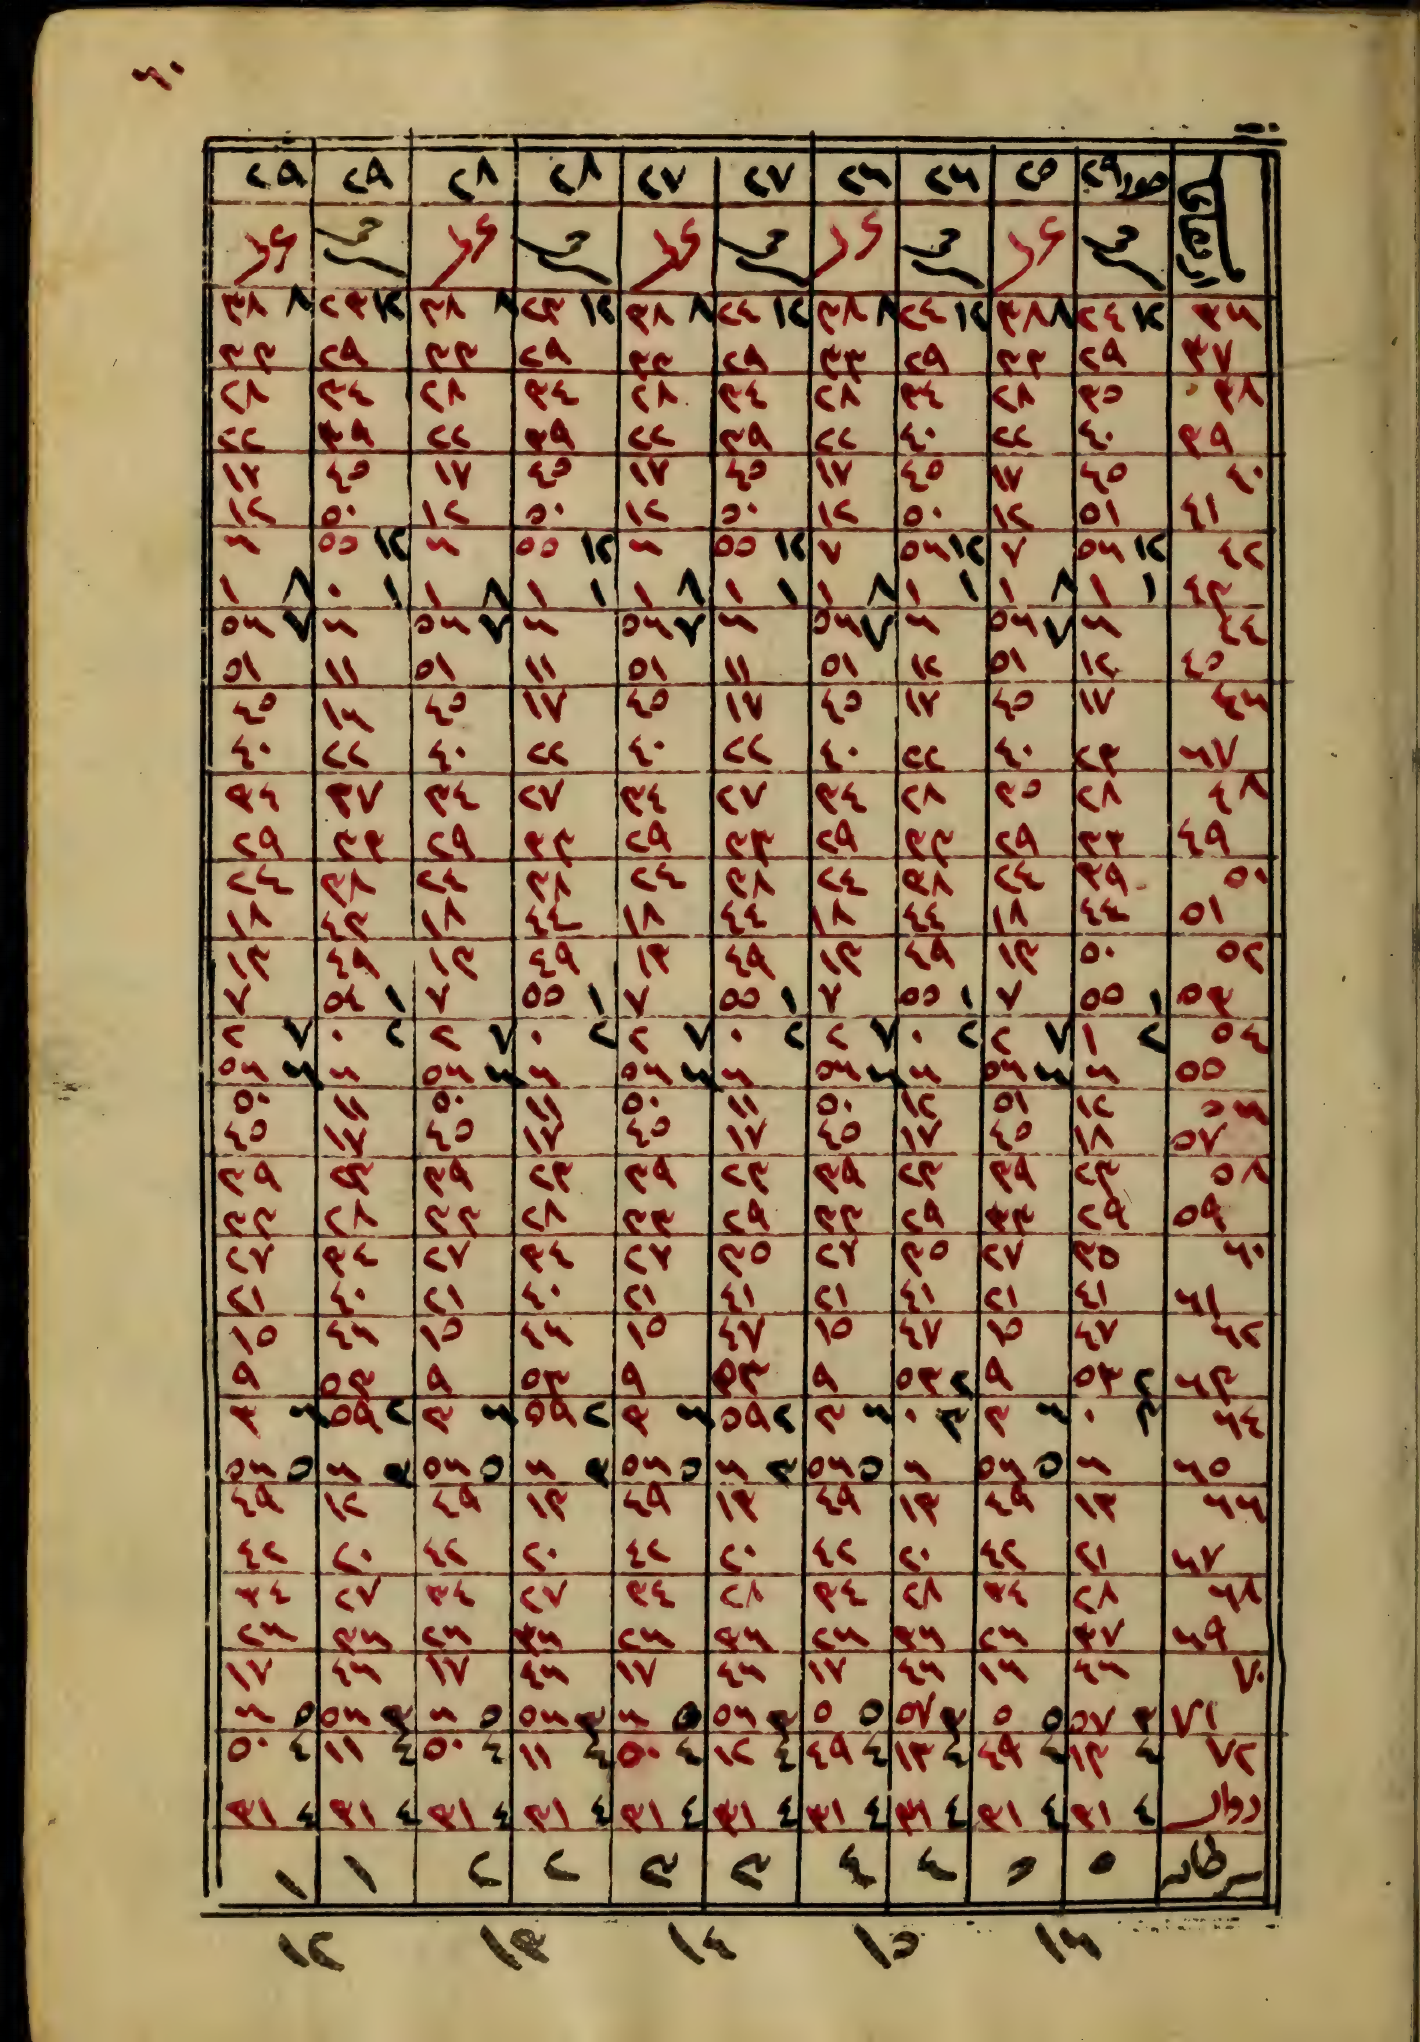 ٢٥ ٢٦ ٢٦ ٢٧ ٢٧ ٢٨ ٢٨ ٢٩ ٢٩
٣٦ ١٢ ٢٤ ٨ ٣٨ ١٢ ٢٤ ٨ ٣٨ ١٢ ٢٤ ٨ ٣٨ ١٢ ٢٣ ٨ ٣٨ ١٢ ٢٣ ٨ ٣٨
٣٧ ٢٩ ٣٣ ٢٩ ٣٣ ٢٩ ٣٣ ٢٩ ٣٣ ٢٩ ٣٣
٣٨ ٣٥ ٢٨ ٣٤ ٢٨ ٣٤ ٢٨ ٣٤ ٢٨ ٣٤ ٢٨
٣٩ ٤٠ ٢٢ ٤٠ ٢٢ ٣٩ ٢٢ ٣٩ ٢٢ ٣٩ ٢٢
٤٠ ٤٥ ١٧ ٤٥ ١٧ ٤٥ ١٧ ٤٥ ١٧ ٤٥ ١٧
٤١ ٥١ ١٢ ٥٠ ١٢ ٥٠ ١٢ ٥٠ ١٢ ٥٠ ١٢
٤٢ ١٢ ٥٦ ٧ ١٢ ٥٦ ٧ ١٢ ٥٥ ٦ ١٢ ٥٥ ٦ ١٢ ٥٥ ٦
٤٣ ١ ١ ٨ ١ ١ ١ ٨ ١ ١ ١ ٨ ١ ١ ١ ٨ ١ ١ ٠ ٨ ١
٤٤ ٦ ٧ ٥٦ ٦ ٧ ٥٦ ٦ ٧ ٥٦ ٦ ٧ ٥٦ ٦ ٧ ٥٦
٤٥ ١٢ ٥١ ١٢ ٥١ ١١ ٥١ ١١ ٥١ ١١ ٥١
٤٦ ١٧ ٤٥ ١٧ ٤٥ ١٧ ٤٥ ١٧ ٤٥ ١٦ ٤٥
٦٧ ٢٣ ٤٠ ٢٢ ٤٠ ٢٢ ٤٠ ٢٢ ٤٠ ٢٢ ٤٠
٤٨ ٢٨ ٣٥ ٢٨ ٣٤ ٢٧ ٣٤ ٢٧ ٣٤ ٣٧ ٣٤
٤٩ ٣٣ ٢٩ ٣٣ ٢٩ ٣٣ ٢٩ ٣٣ ٢٩ ٣٣ ٢٩
٥٠ ٣٩ ٢٤ ٣٨ ٢٤ ٣٨ ٢٤ ٣٨ ٢٤ ٣٨ ٢٤
٥١ ٤٤ ١٨ ٤٤ ١٨ ٤٤ ١٨ ٤٤ ١٨ ٤٣ ١٨
٥٢ ٥٠ ١٣ ٤٩ ١٣ ٤٩ ١٣ ٤٩ ١٣ ٤٩ ١٣
٥٣ ١ ٥٥ ٧ ١ ٥٥ ٧ ١ ٥٥ ٧ ١ ٥٥ ٧ ١ ٥٤ ٧
٥٤ ٢ ١ ٧ ٢ ٢ ٠ ٧ ٢ ٢ ٠ ٧ ٢ ٢ ٠ ٧ ٢ ٢ ٠ ٧ ٢
٥٥ ٦ ٦ ٥٦ ٦ ٦ ٥٦ ٦ ٦ ٥٦ ٦ ٦ ٥٦ ٦ ٦ ٥٦
٥٦ ١٢ ٥١ ١٢ ٥٠ ١١ ٥٠ ١١ ٥٠ ١١ ٥٠
٥٧ ١٨ ٤٥ ١٧ ٤٥ ١٧ ٤٥ ١٧ ٤٥ ١٧ ٤٥
٥٨ ٢٣ ٣٩ ٢٣ ٣٩ ٢٣ ٣٩ ٢٣ ٣٩ ٥٣ ٣٩
٥٩ ٢٩ ٣٣ ٢٩ ٣٣ ٢٩ ٣٣ ٢٨ ٣٣ ٢٨ ٣٣
٦٠ ٣٥ ٢٧ ٣٥ ٢٧ ٣٥ ٢٧ ٣٤ ٢٧ ٣٤ ٢٧
٦١ ٤١ ٢١ ٤١ ٢١ ٤١ ٢١ ٤٠ ٢١ ٤٠ ٢١
٦٢ ٤٧ ١٥ ٤٧ ١٥ ٤٧ ١٥ ٤٦ ١٥ ٤٦ ١٥
٦٣ ٢ ٥٣ ٩ ٢ ٥٣ ٩ ٥٣ ٩ ٥٣ ٩ ٥٣ ٩
٦٤ ٣ ٠ ٦ ٣ ٣ ٠ ٦ ٣ ٢ ٥٩ ٦ ٣ ٢ ٥٩ ٦ ٣ ٢ ٥٩ ٦ ٣
٦٥ ٦ ٥ ٥٦ ٦ ٥ ٥٦ ٣ ٦ ٥ ٥٦ ٣ ٦ ٥ ٥٦ ٣ ٦ ٥ ٥٦
٦٦ ١٣ ٤٩ ١٣ ٤٩ ١٣ ٤٩ ١٣ ٤٩ ١٢ ٤٩
٦٧ ٢١ ٤٢ ٢٠ ٤٢ ٢٠ ٤٢ ٢٠ ٤٢ ٢٠ ٤٢
٦٨ ٢٨ ٣٤ ٢٨ ٣٤ ٢٨ ٣٤ ٢٧ ٣٤ ٢٧ ٣٤
٦٩ ٣٧ ٢٦ ٣٦ ٢٦ ٣٦ ٢٦ ٣٦ ٢٦ ٣٦ ٢٦
٧٠ ٤٦ ١٦ ٤٦ ١٧ ٤٦ ١٧ ٤٦ ١٧ ٤٦ ١٧
٧١ ٣ ٥٧ ٥ ٥ ٣ ٥٧ ٥ ٥ ٣ ٥٦ ٥ ٦ ٣ ٥٦ ٥ ٦ ٣ ٥٦ ٥ ٦
٧٢ ٤ ١٣ ٤ ٤٩ ٤ ١٣ ٤ ٤٩ ٤ ١٢ ٤ ٥٠ ٤ ١١ ٤ ٥٠ ٤ ١١ ٤ ٥٠
٤ ٣١ ٤ ٣١ ٤ ٣١ ٤ ٣١ ٤ ٣١ ٤ ٣١ ٤ ٣١ ٤ ٣١ ٤ ٣١ ٤ ٣١
٥ ٥ ٤ ٤ ٣ ٣ ٢ ٢ ١ ١
١٦ ١٥ ١٤ ١٣ ١٢